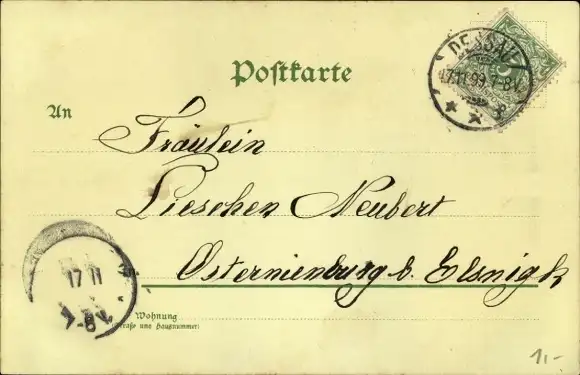 DESSAU
17.11.99.7-8V.
Postkarte
An
Fräulein
Lieschen Neubert
Osternienburg b. Elsnigk
17 11
7-8
Wohnung
(Straße und Hausnummer)
1,-